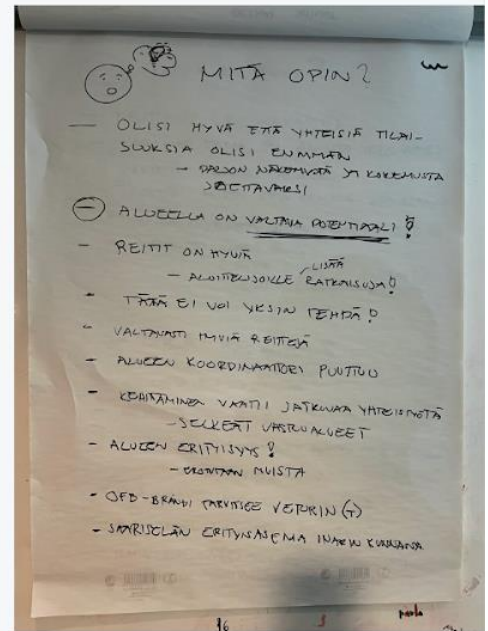 MITÄ OPIN?
— OLISI HYVÄ ETTÄ YHTEISIÄ TILAI-
SUUKSIA OLISI ENEMMÄN
- PALJON NÄKEMYSTÄ JA KOKEMUSTA
JAETTAVAKSI
— ALUEELLA ON VALTAVA POTENTIAALI!
- REITIT ON HYVIÄ
LISÄÄ
- ALOITTELIJOILLE RATKAISUJA!
- TÄTÄ EI VOI YKSIN TEHDÄ!
- VALTAVASTI HYVIÄ REITTEJÄ
- ALUEEN KOORDINAATTORI PUUTTUU
- KEHITTÄMINEN VAATII JATKUVAA YHTEISTYÖTÄ
- SELKEÄT VASTUUALUEET
- ALUEEN ERITYISYYS!
- EROTUTAAN MUISTA
- OFB-BRÄNDI TARVITSEE VETURIN (T)
- SAARISELÄN ERITYISASEMA INARIN KUNNASSA
16
3